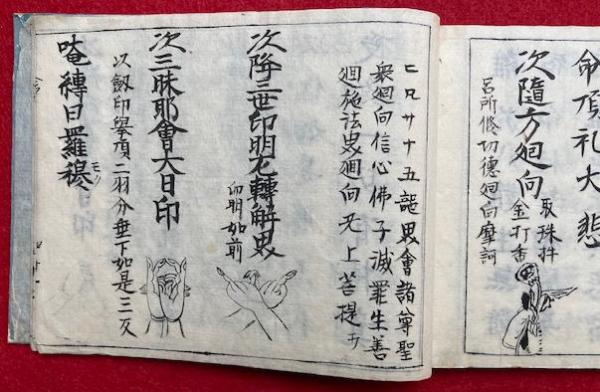 命頂礼大悲
次隨方廻向
取珠抂
金打香
呂所修功徳廻向摩訶
衆廻向信心佛子滅罪生善
廻施法界廻向无上菩提
次降三世印明左轉解界
印明如前
次三昧耶會大日印
以劔印擧頂二羽分垂下如是三反
唵縛日羅穆
モク